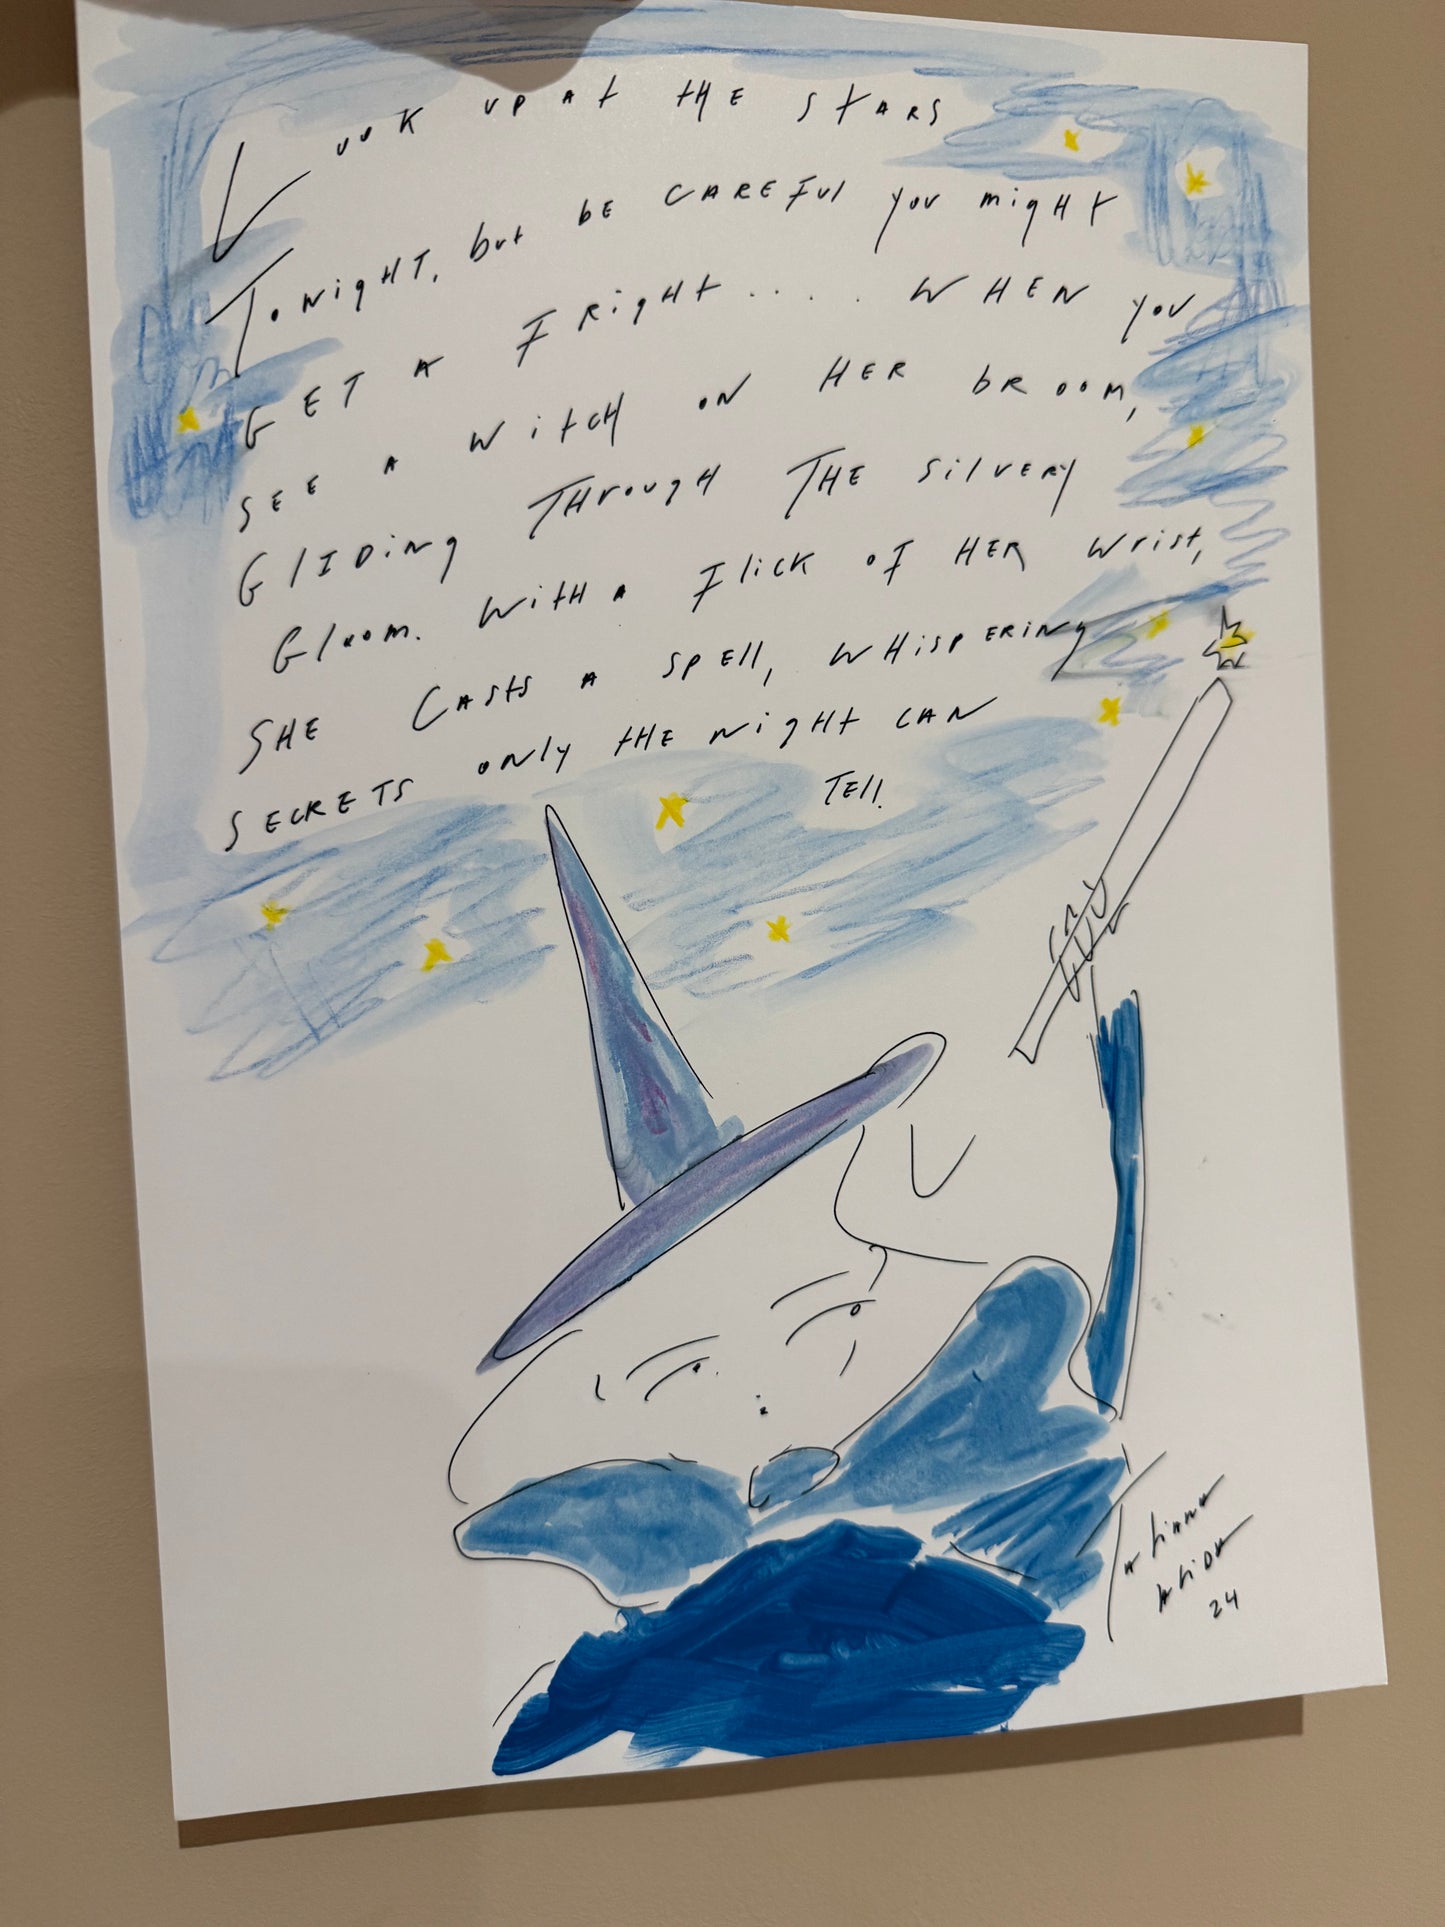 Look up at the stars
Tonight, but be careful you might
get a fright..... when you
see a witch on her broom,
gliding through the silvery
gloom. with a flick of her wrist,
she casts a spell, whispering
secrets only the night can
tell.
Tatiana
Alida
24